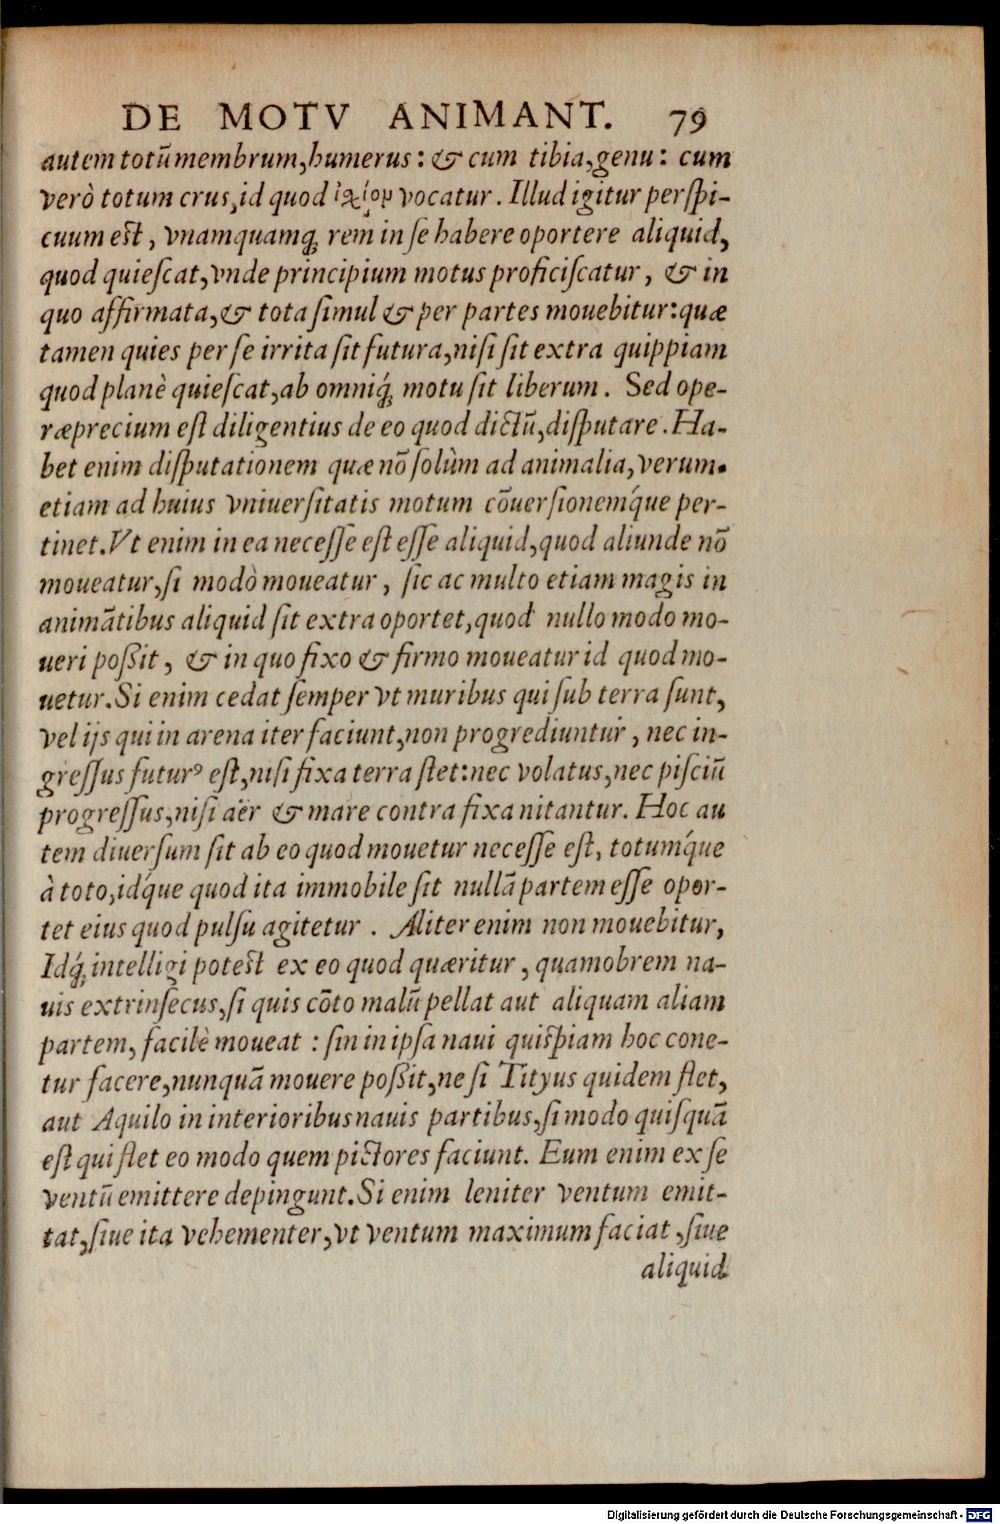 DE MOTV ANIMANT. 79
autem totũ membrum, humerus: & cum tibia, genu: cum
verò totum crus, id quod ἰχίον vocatur. Illud igitur perſpi-
cuum eſt, vnamquamq́; rem in ſe habere oportere aliquid,
quod quieſcat, vnde principium motus proficiſcatur, & in
quo affirmata, & tota ſimul & per partes mouebitur: quæ
tamen quies per ſe irrita ſit futura, niſi ſit extra quippiam
quod planè quieſcat, ab omniq́; motu ſit liberum. Sed ope-
ræprecium eſt diligentius de eo quod dictũ, diſputare. Ha-
bet enim diſputationem quæ nõ ſolùm ad animalia, verum.
etiam ad huius vniuerſitatis motum cõuerſionemq́ue per-
tinet. Vt enim in ea neceſſe eſt eſſe aliquid, quod aliunde nõ
moueatur, ſi modò moueatur, ſic ac multo etiam magis in
animãtibus aliquid ſit extra oportet, quod nullo modo mo-
ueri poßit, & in quo fixo & firmo moueatur id quod mo-
uetur. Si enim cedat ſemper vt muribus qui ſub terra ſunt,
vel ijs qui in arena iter faciunt, non progrediuntur, nec in-
greſſus futurꝰ eſt, niſi fixa terra ſtet: nec volatus, nec piſciũ
progreſſus, niſi aër & mare contra fixa nitantur. Hoc au
tem diuerſum ſit ab eo quod mouetur neceſſe eſt, totumq́ue
à toto, idq́ue quod ita immobile ſit nullã partem eſſe opor-
tet eius quod pulſu agitetur. Aliter enim non mouebitur,
Idq́; intelligi poteſt ex eo quod quæritur, quamobrem na-
uis extrinſecus, ſi quis cõto malũ pellat aut aliquam aliam
partem, facilè moueat: ſin in ipſa naui quiſpiam hoc cone-
tur facere, nunquã mouere poßit, ne ſi Tityus quidem flet,
aut Aquilo in interioribus nauis partibus, ſi modo quiſquã
eſt qui flet eo modo quem pictores faciunt. Eum enim ex ſe
ventũ emittere depingunt. Si enim leniter ventum emit-
tat, ſiue ita vehementer, vt ventum maximum faciat, ſiue
aliquid
Digitalisierung gefördert durch die Deutsche Forschungsgemeinschaft - DFG